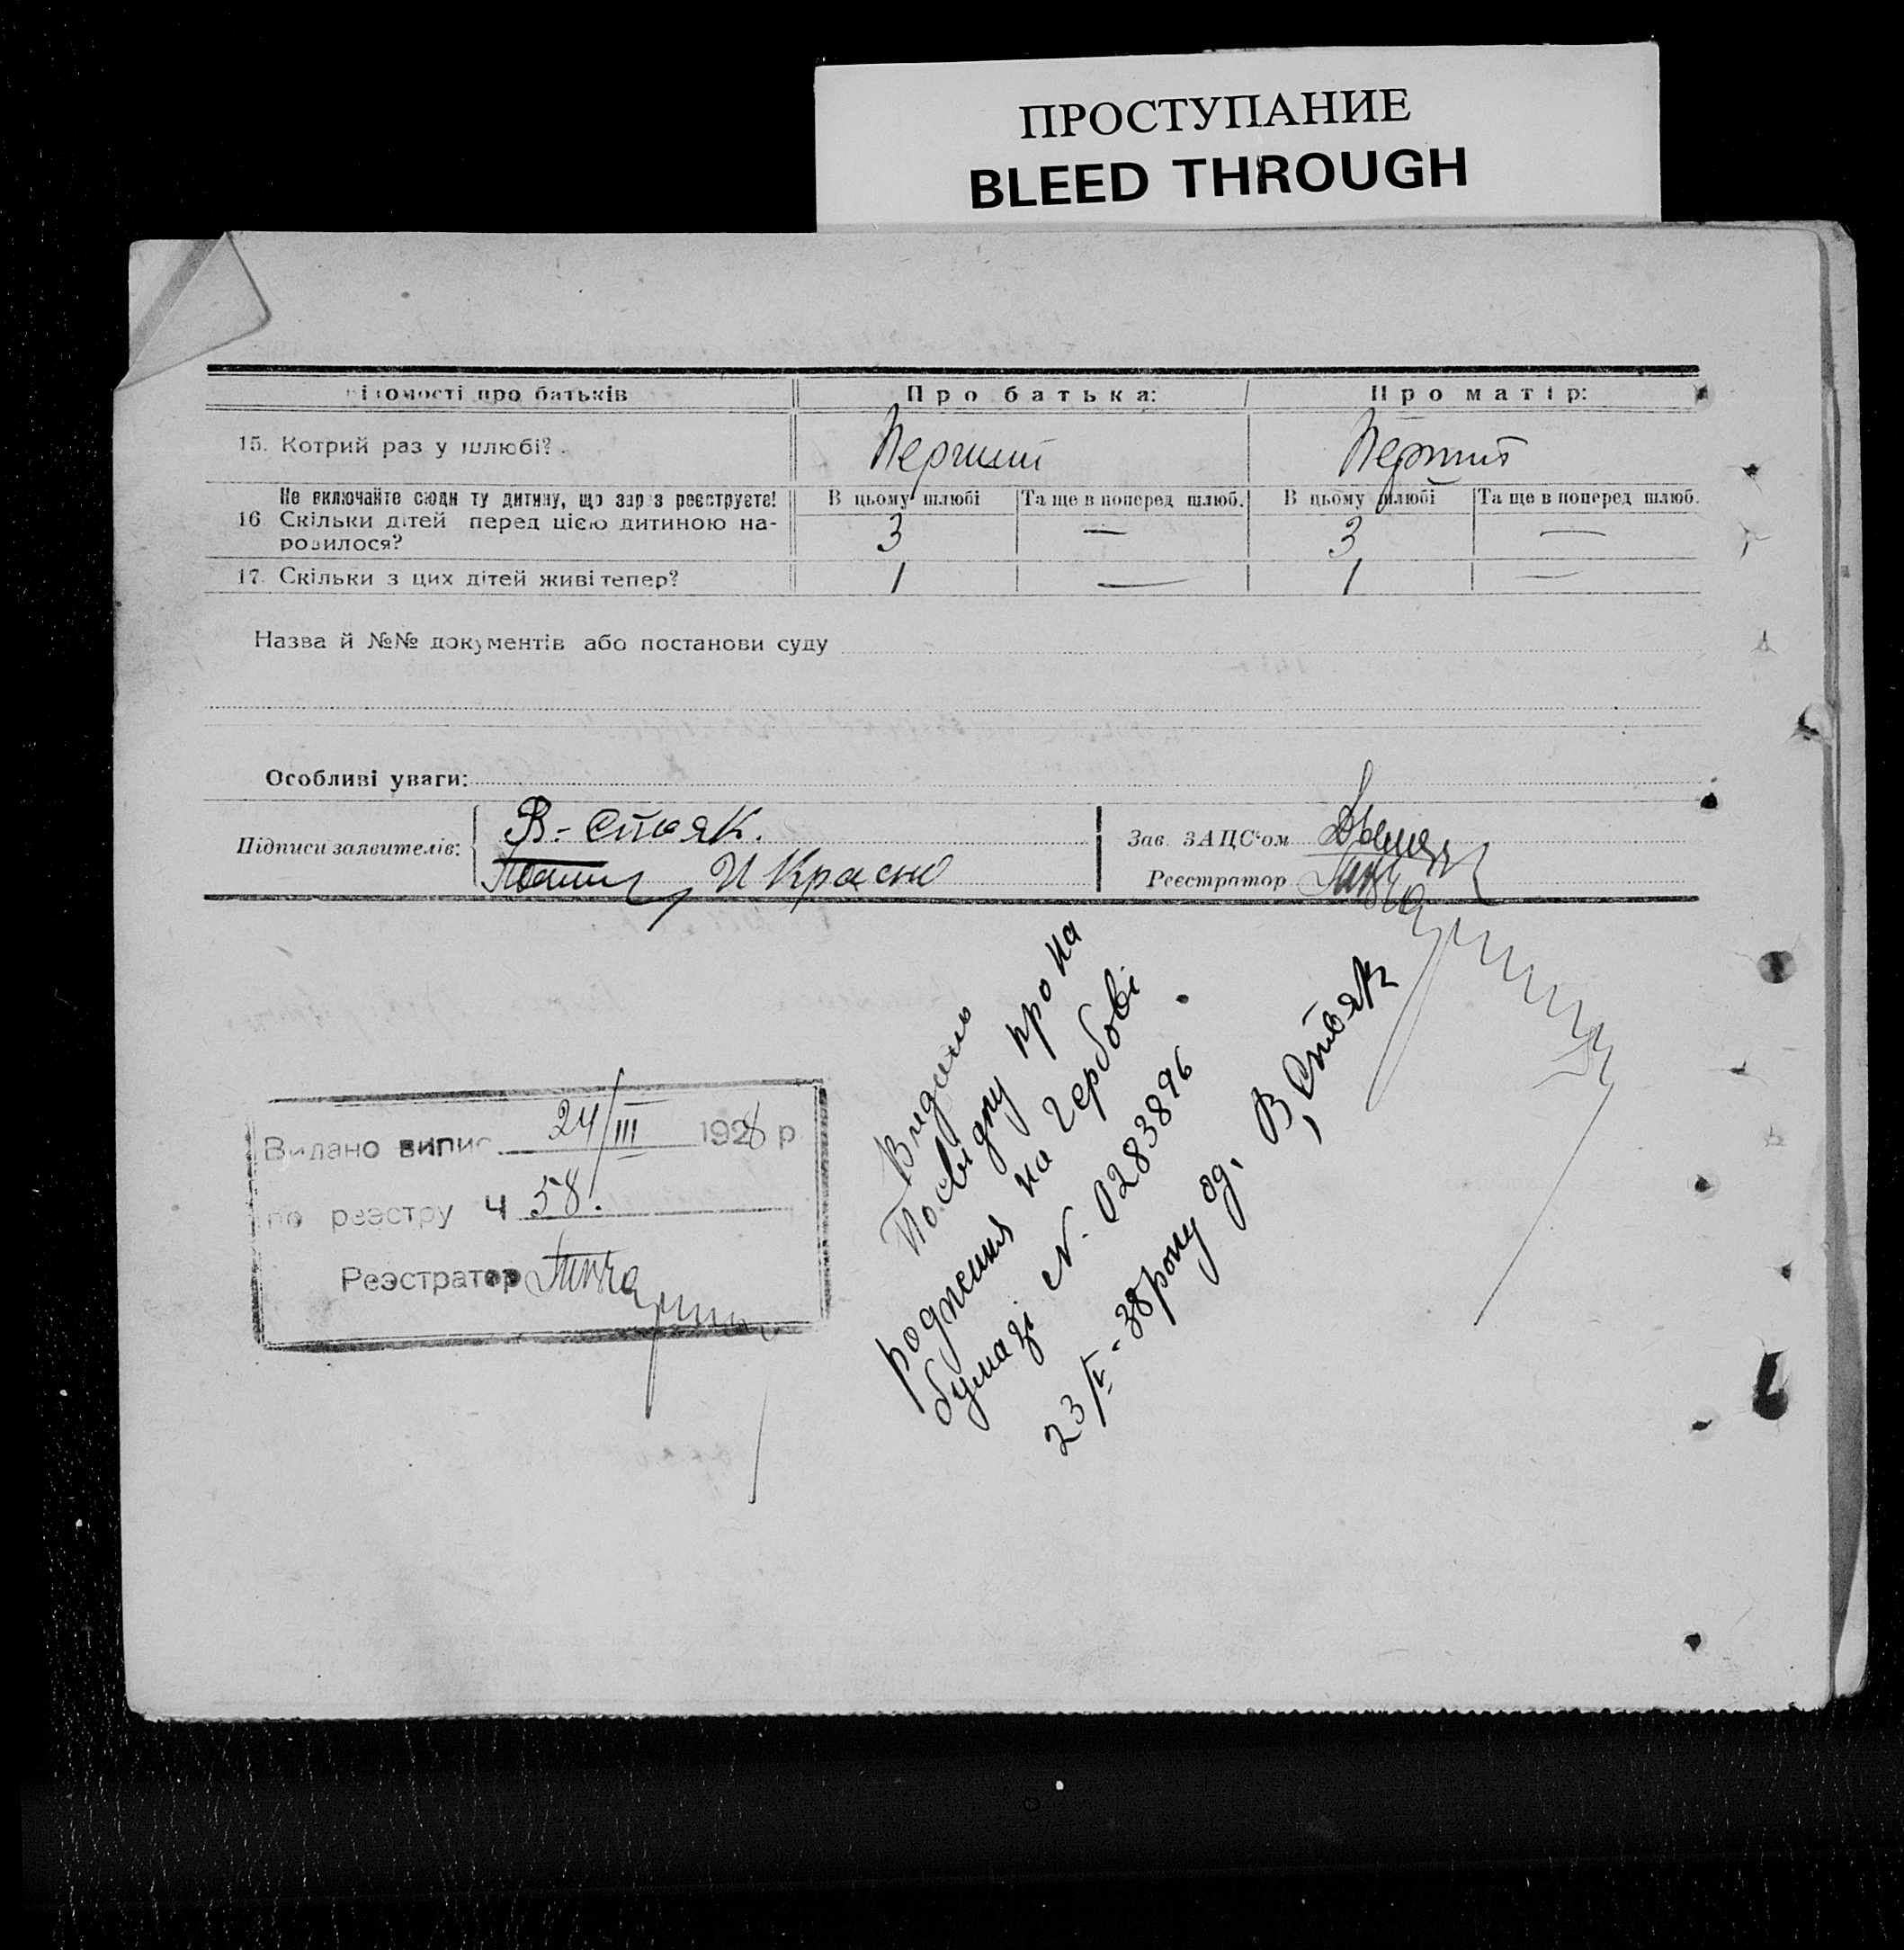 ПРОСТУПАНИЕ
BLEED THROUGH
ідомості про батьків Про батька: Про матір:
15. Котрий раз у шлюбі? Перший Перший
Не включайте сюди ту дитину, що зараз реєструєте! В цьому шлюбі Та ще в поперед шлюб. В цьому шлюбі Та ще в поперед шлюб.
16. Скільки дітей перед цією дитиною на-
родилося? 3 — 3 —
17. Скільки з цих дітей живі тепер? 1 — 1 —
Назва й №№ документів або постанови суду
Особливі уваги:
Підписи заявителів: В. Стояк.
И Красно
Зав. ЗАЦС‘ом
Реєстратор
Видано випис 24/III 1928 р
по реэстру Ч 58.
Реэстратор
Видано
Посвідку про на
родження на гербові
бумазі N. 0283896
23/V - 38 року од. В, Стояк